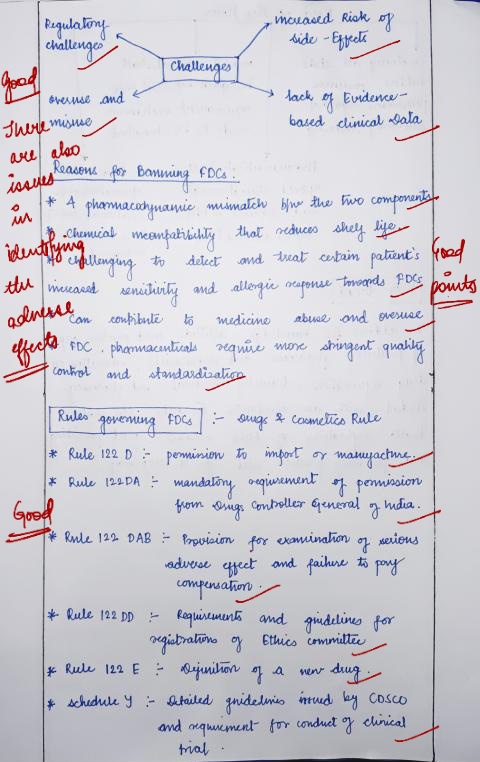 Regulatory challenges
increased Risk of side-Effects
Challenges
overuse and misuse
lack of Evidence-based clinical Data
Good
There are also issues in identifying the adverse effects
Reasons for Banning FDCs.
* A pharmacodynamic mismatch b/w the two components
* chemical incompatibility that reduces shelf life.
* challenging to detect and treat certain patient's
increased sensitivity and allergic response towards FDCs
can contribute to medicine abuse and overuse
* FDC pharmaceuticals require more stringent quality
control and standardization
Good points
Rules governing FDCs :- Drugs & Cosmetics Rule
* Rule 122 D :- permission to import or manufacture.
* Rule 122DA :- mandatory requirement of permission
from Drugs Controller General of India.
Good
* Rule 122 DAB :- Provision for examination of serious
adverse effect and failure to pay
compensation.
* Rule 122 DD :- Requirements and guidelines for
registrations of Ethics committee
* Rule 122 E :- Definition of a new drug.
* schedule Y :- Detailed guidelines issued by CDSCO
and requirement for conduct of clinical
trial.